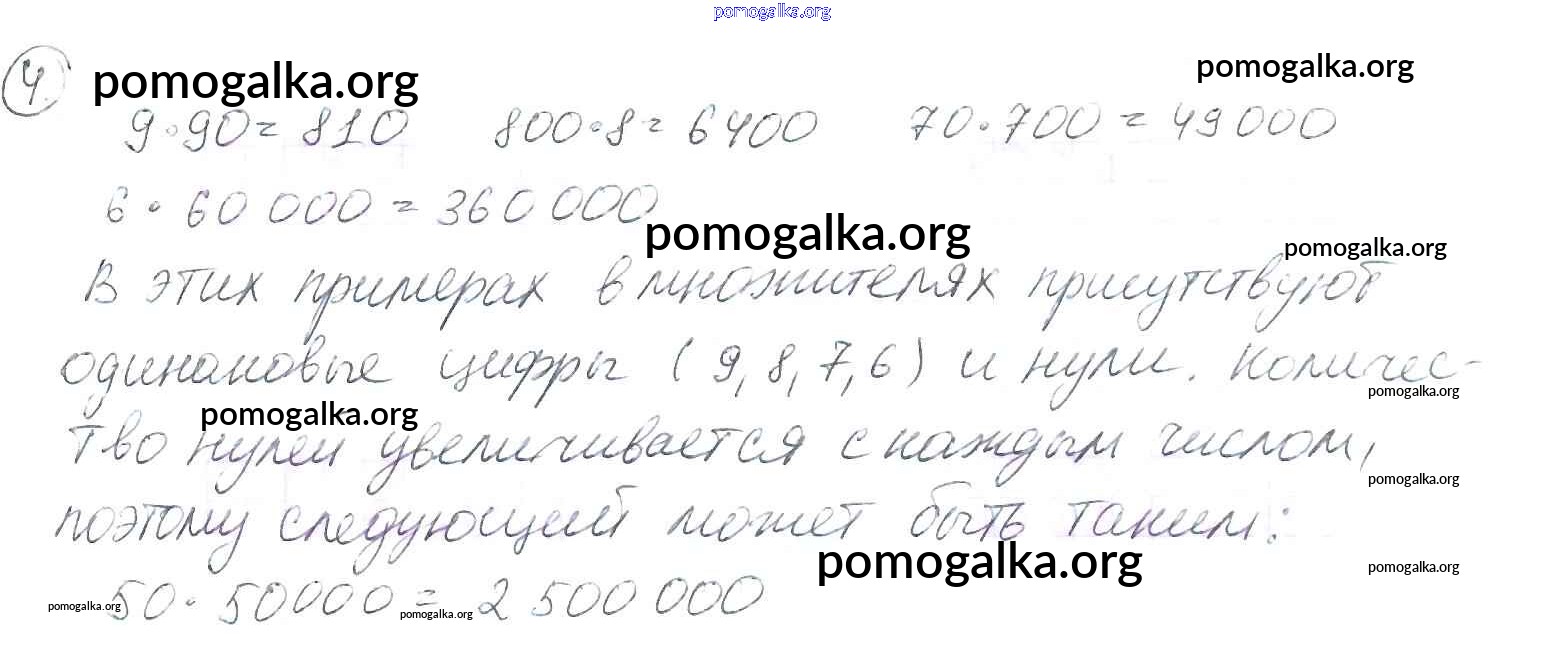 pomogalka.org
4. pomogalka.org pomogalka.org
9·90= 810 800·8= 6400 70·700 = 49 000
6·60 000 = 360 000
pomogalka.org pomogalka.org
В этих примерах в множителях присутствуют
одинаковые цифры (9, 8, 7, 6) и нули. Количес-
pomogalka.org pomogalka.org
тво нулей увеличивается с каждым числом,
pomogalka.org
поэтому следующий может быть таким:
pomogalka.org pomogalka.org
50·50000 = 2 500 000
pomogalka.org pomogalka.org